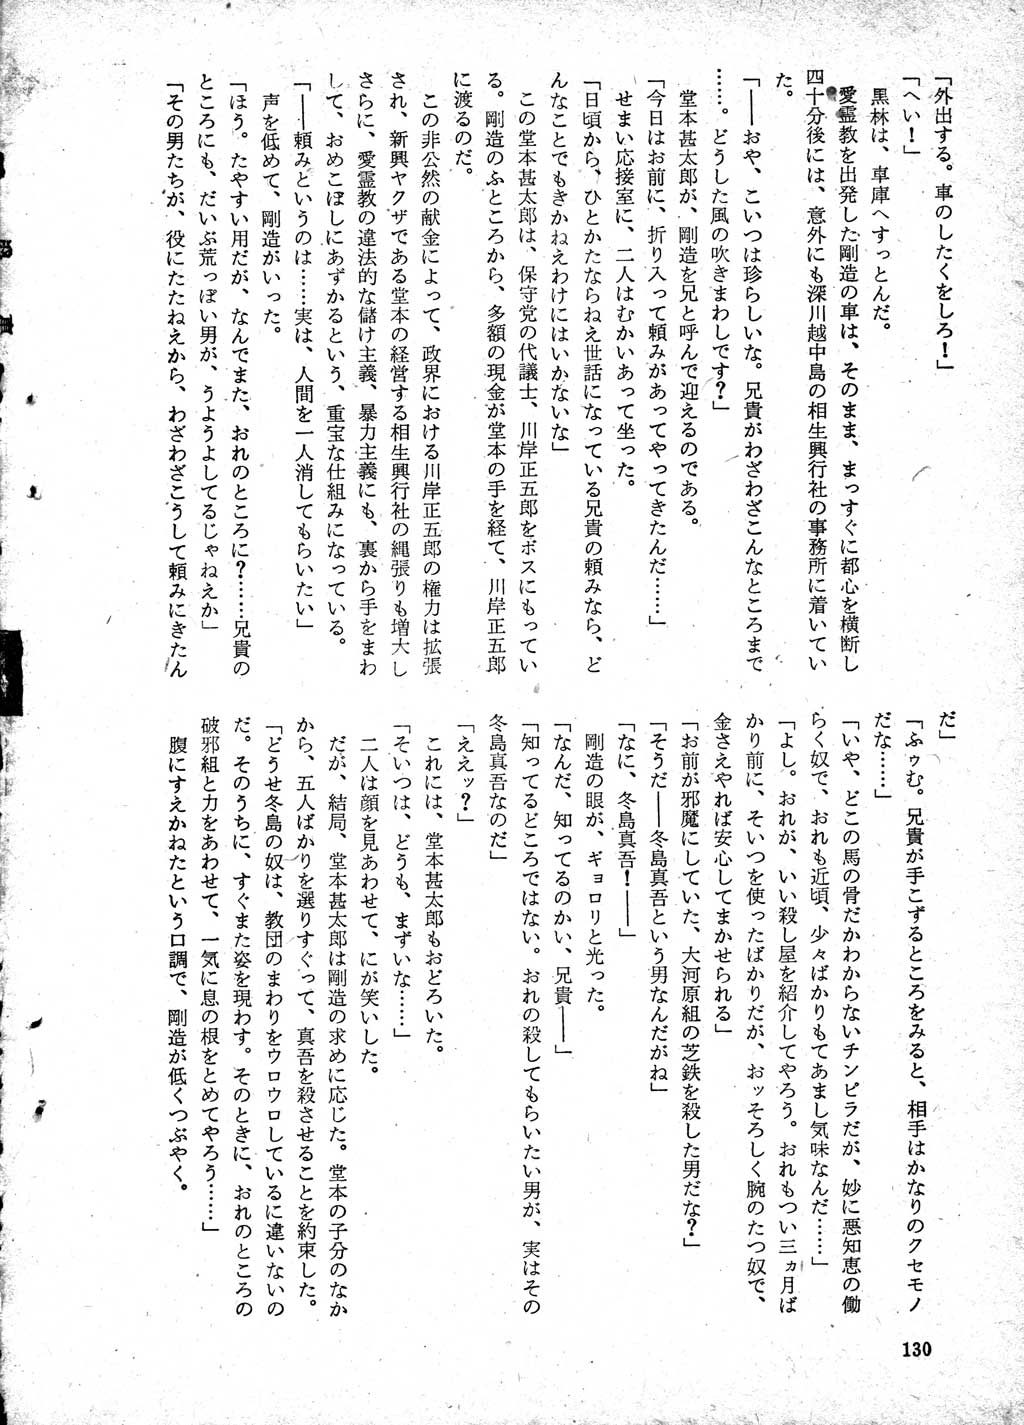 「外出する。車のしたくをしろ！」
「へい！」
黒林は、車庫へすっとんだ。
愛霊教を出発した剛造の車は、そのまま、まっすぐに都心を横断し
四十分後には、意外にも深川越中島の相生興行社の事務所に着いてい
た。
「――おや、こいつは珍らしいな。兄貴がわざわざこんなところまで
……。どうした風の吹きまわしです？」
堂本甚太郎が、剛造を兄と呼んで迎えるのである。
「今日はお前に、折り入って頼みがあってやってきたんだ……」
せまい応接室に、二人はむかいあって坐った。
「日頃から、ひとかたならねえ世話になっている兄貴の頼みなら、ど
んなことでもきかねえわけにはいかないな」
この堂本甚太郎は、保守党の代議士、川岸正五郎をボスにもってい
る。剛造のふところから、多額の現金が堂本の手を経て、川岸正五郎
に渡るのだ。
この非公然の献金によって、政界における川岸正五郎の権力は拡張
され、新興ヤクザである堂本の経営する相生興行社の縄張りも増大し
さらに、愛霊教の違法的な儲け主義、暴力主義にも、裏から手をまわ
して、おめこぼしにあずかるという、重宝な仕組みになっている。
「――頼みというのは……実は、人間を一人消してもらいたい」
声を低めて、剛造がいった。
「ほう。たやすい用だが、なんでまた、おれのところに？……兄貴の
ところにも、だいぶ荒っぽい男が、うようよしてるじゃねえか」
「その男たちが、役にたたねえから、わざわざこうして頼みにきたん
だ」
「ふゥむ。兄貴が手こずるところをみると、相手はかなりのクセモノ
だな……」
「いや、どこの馬の骨だかわからないチンピラだが、妙に悪知恵の働
らく奴で、おれも近頃、少々ばかりもてあまし気味なんだ……」
「よし。おれが、いい殺し屋を紹介してやろう。おれもつい三ヵ月ば
かり前に、そいつを使ったばかりだが、おッそろしく腕のたつ奴で、
金さえやれば安心してまかせられる」
「お前が邪魔にしていた、大河原組の芝鉄を殺した男だな？」
「そうだ――冬島真吾という男なんだがね」
「なに、冬島真吾！――」
剛造の眼が、ギョロリと光った。
「なんだ、知ってるのかい、兄貴――」
「知ってるどころではない。おれの殺してもらいたい男が、実はその
冬島真吾なのだ」
「ええッ？」
これには、堂本甚太郎もおどろいた。
「そいつは、どうも、まずいな……」
二人は顔を見あわせて、にが笑いした。
だが、結局、堂本甚太郎は剛造の求めに応じた。堂本の子分のなか
から、五人ばかりを選りすぐって、真吾を殺させることを約束した。
「どうせ冬島の奴は、教団のまわりをウロウロしているに違いないの
だ。そのうちに、すぐまた姿を現わす。そのときに、おれのところの
破邪組と力をあわせて、一気に息の根をとめてやろう……」
腹にすえかねたという口調で、剛造が低くつぶやく。
130